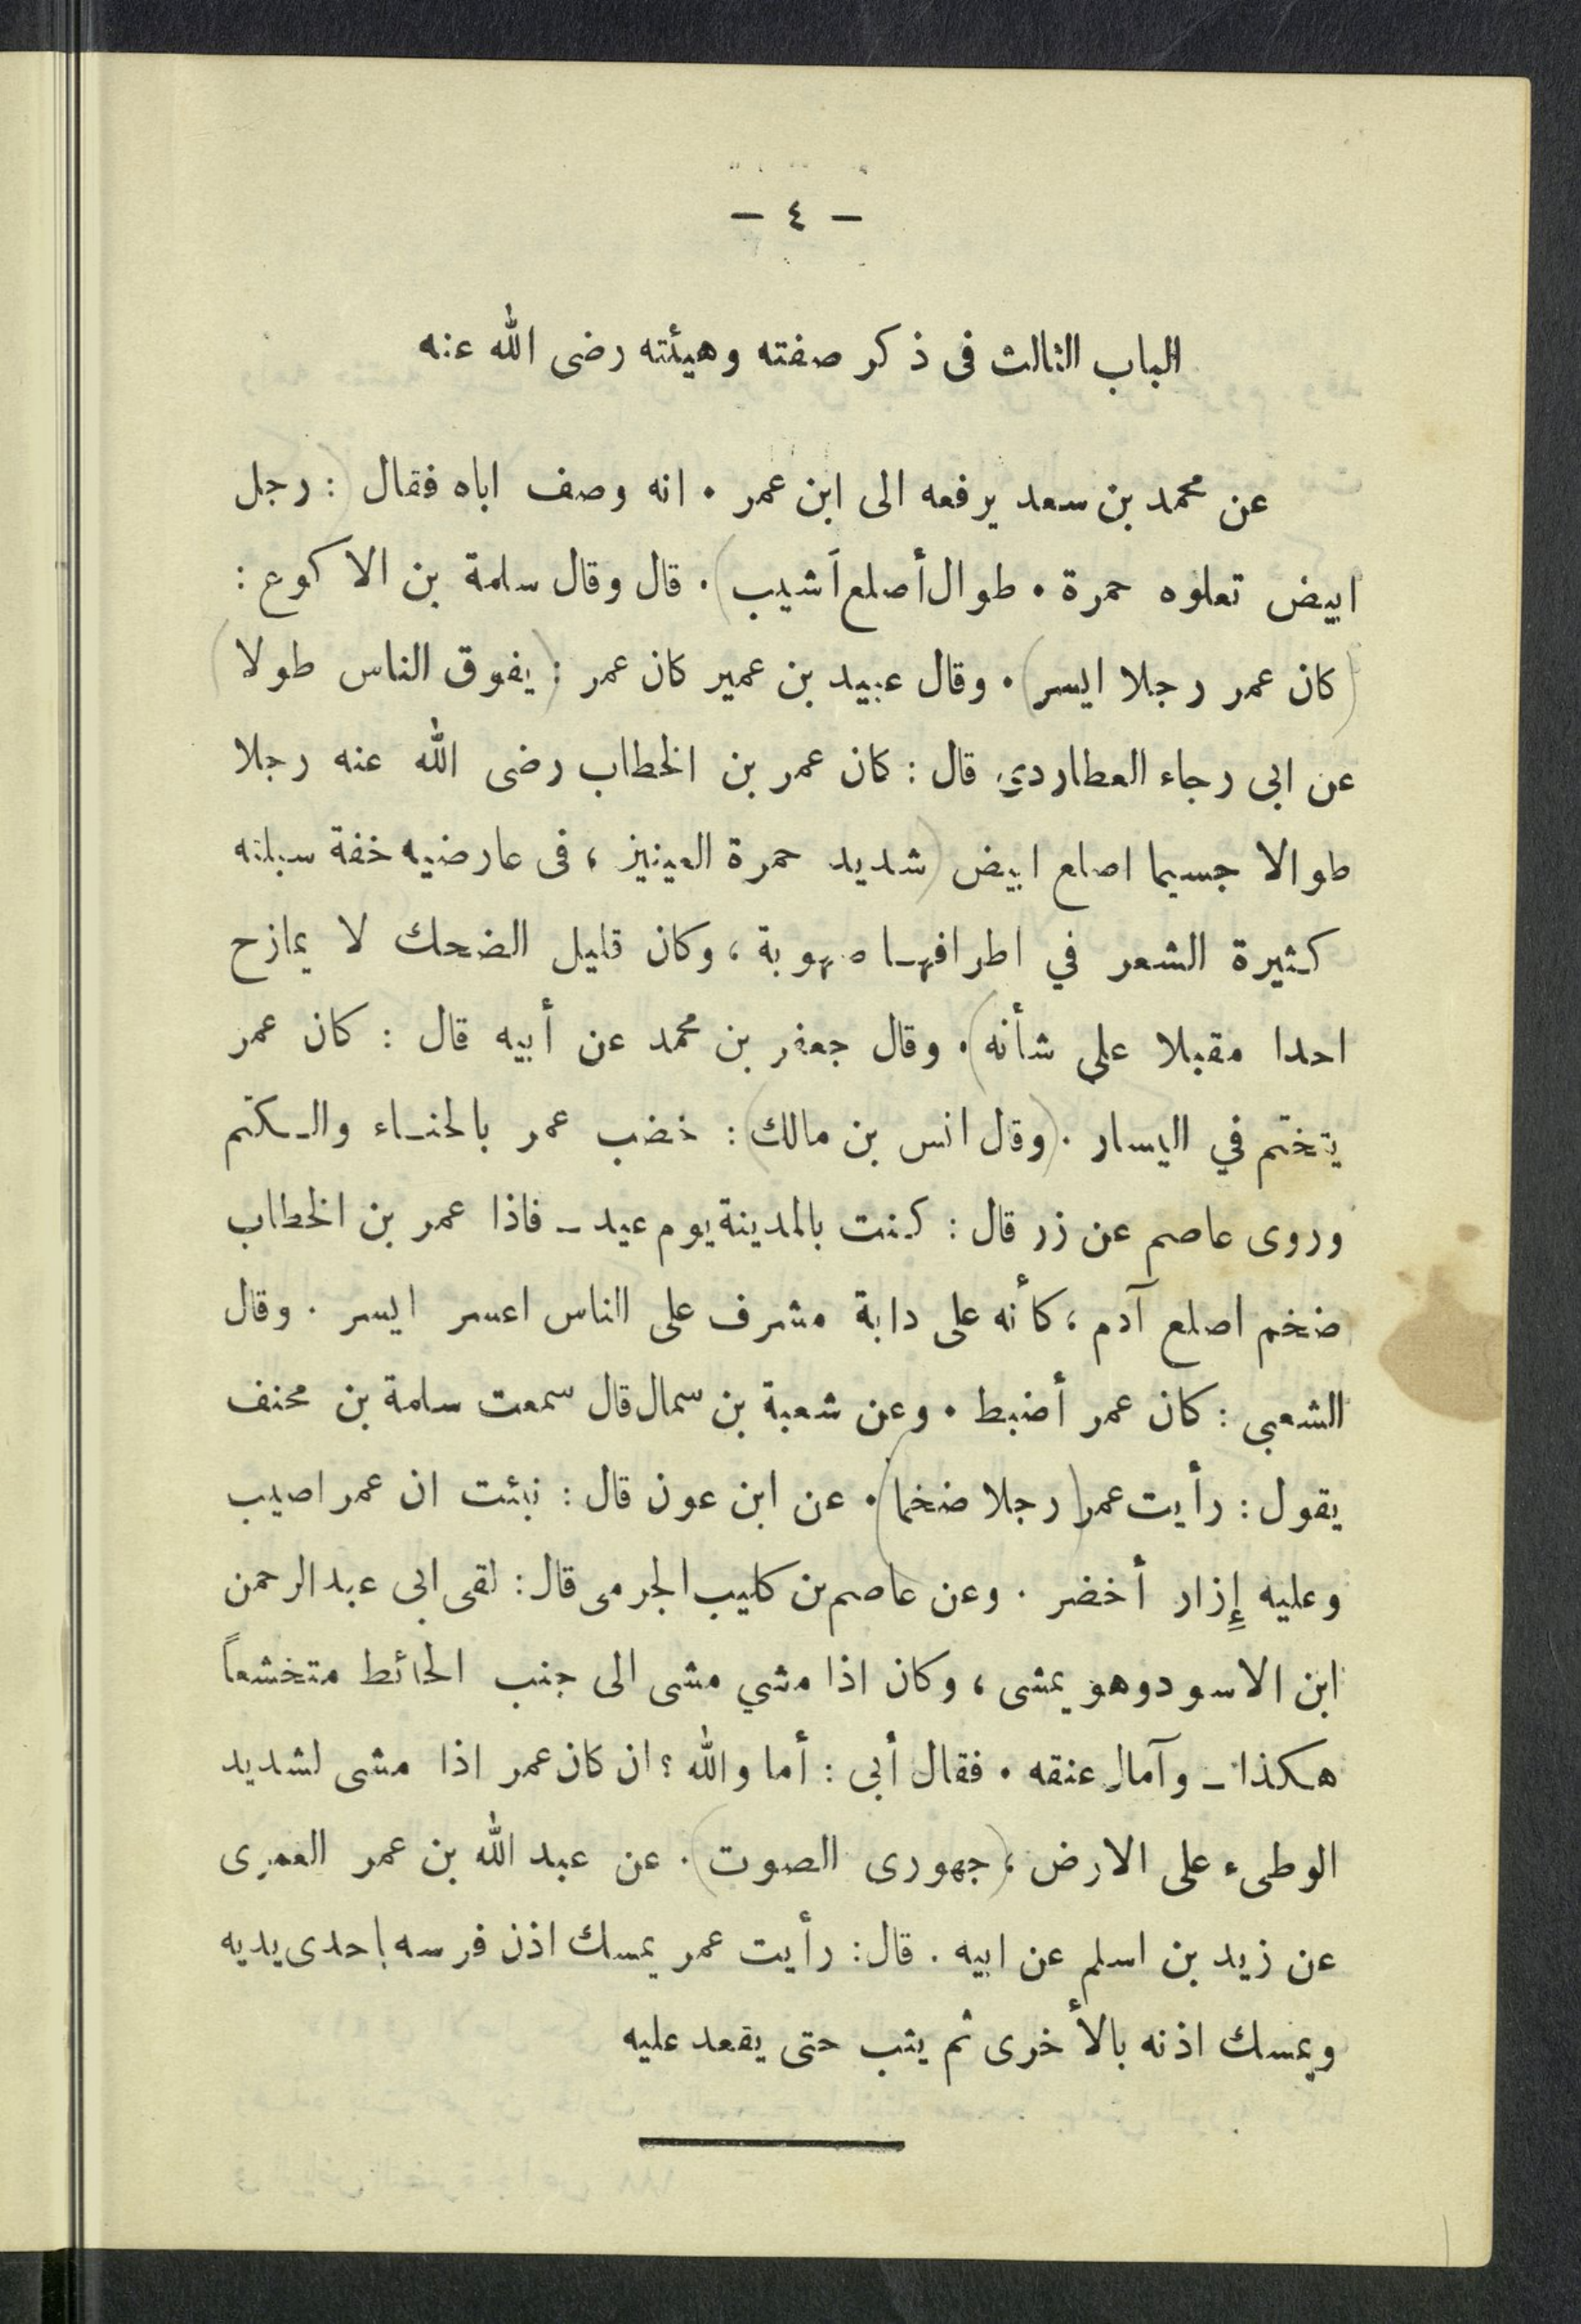 — ٤ —
الباب الثالث فى ذكر صفته وهيئته رضى الله عنه
عن محمد بن سعد يرفعه الى ابن عمر . انه وصف اباه فقال : (رجل
ابيض تعلوه حمرة . طوال أصلع أشيب) . قال وقال سلمة بن الاكوع :
(كان عمر رجلا ايسر) . وقال عبيد بن عمير كان عمر : (يفوق الناس طولا)
عن ابى رجاء العطاردي قال : كان عمر بن الخطاب رضى الله عنه رجلا
طوالا جسيما اصلع ابيض (شديد حمرة العينين ، فى عارضيه خفة سبلته
كثيرة الشعر في اطرافها صهوبة ، وكان قليل الضحك لا يمازح
احدا مقبلا على شأنه) . وقال جعفر بن محمد عن أبيه قال : كان عمر
يتختم في اليسار . (وقال انس بن مالك) : خضب عمر بالحناء والكتم
وروى عاصم عن زر قال : كنت بالمدينة يوم عيد – فاذا عمر بن الخطاب
ضخم اصلع آدم ، كأنه على دابة مشرف على الناس اعسر ايسر . وقال
الشعبى : كان عمر أضبط . وعن شعبة بن سمال قال سمعت سلمة بن محنف
يقول : رأيت عمر (رجلا ضخما) . عن ابن عون قال : نبئت ان عمر اصيب
وعليه إِزار أخضر . وعن عاصم بن كليب الجرمى قال : لقى ابى عبد الرحمن
ابن الاسود وهو يمشى ، وكان اذا مشي مشى الى جنب الحائط متخشعاً
هكذا – وآمال عنقه . فقال أبى : أما والله ؟ ان كان عمر اذا مشى لشديد
الوطىء على الارض ، (جهورى الصوت) . عن عبد الله بن عمر العمرى
عن زيد بن اسلم عن ابيه . قال : رأيت عمر يمسك اذن فرسه باحدى يديه
ويمسك اذنه بالأخرى ثم يثب حتى يقعد عليه